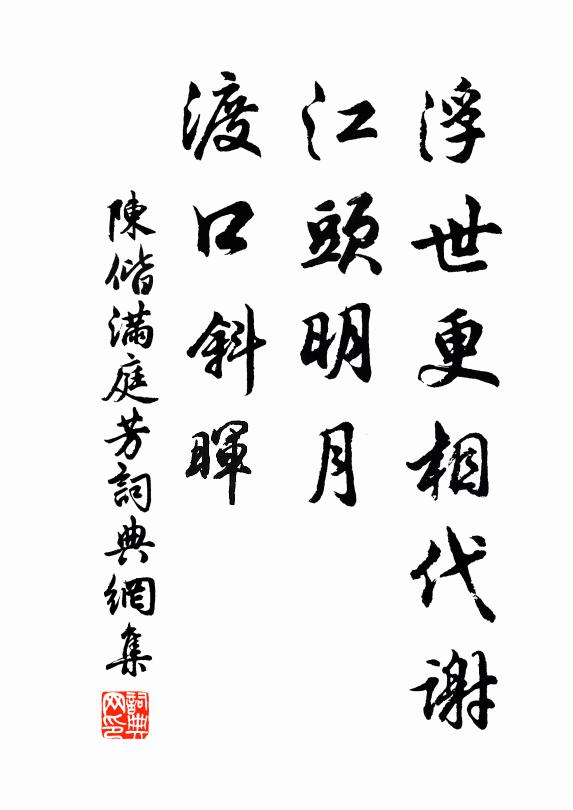 浮世更相代謝
江頭明月
渡口斜暉
陳偕滿庭芳詞典網集
詞典
网印